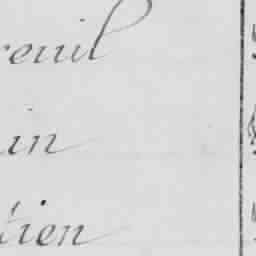 reuil
in
tien